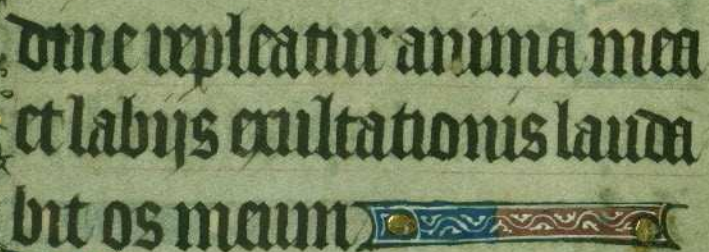 dine repleatur anima mea
et labijs exultationis lauda
bit os meum